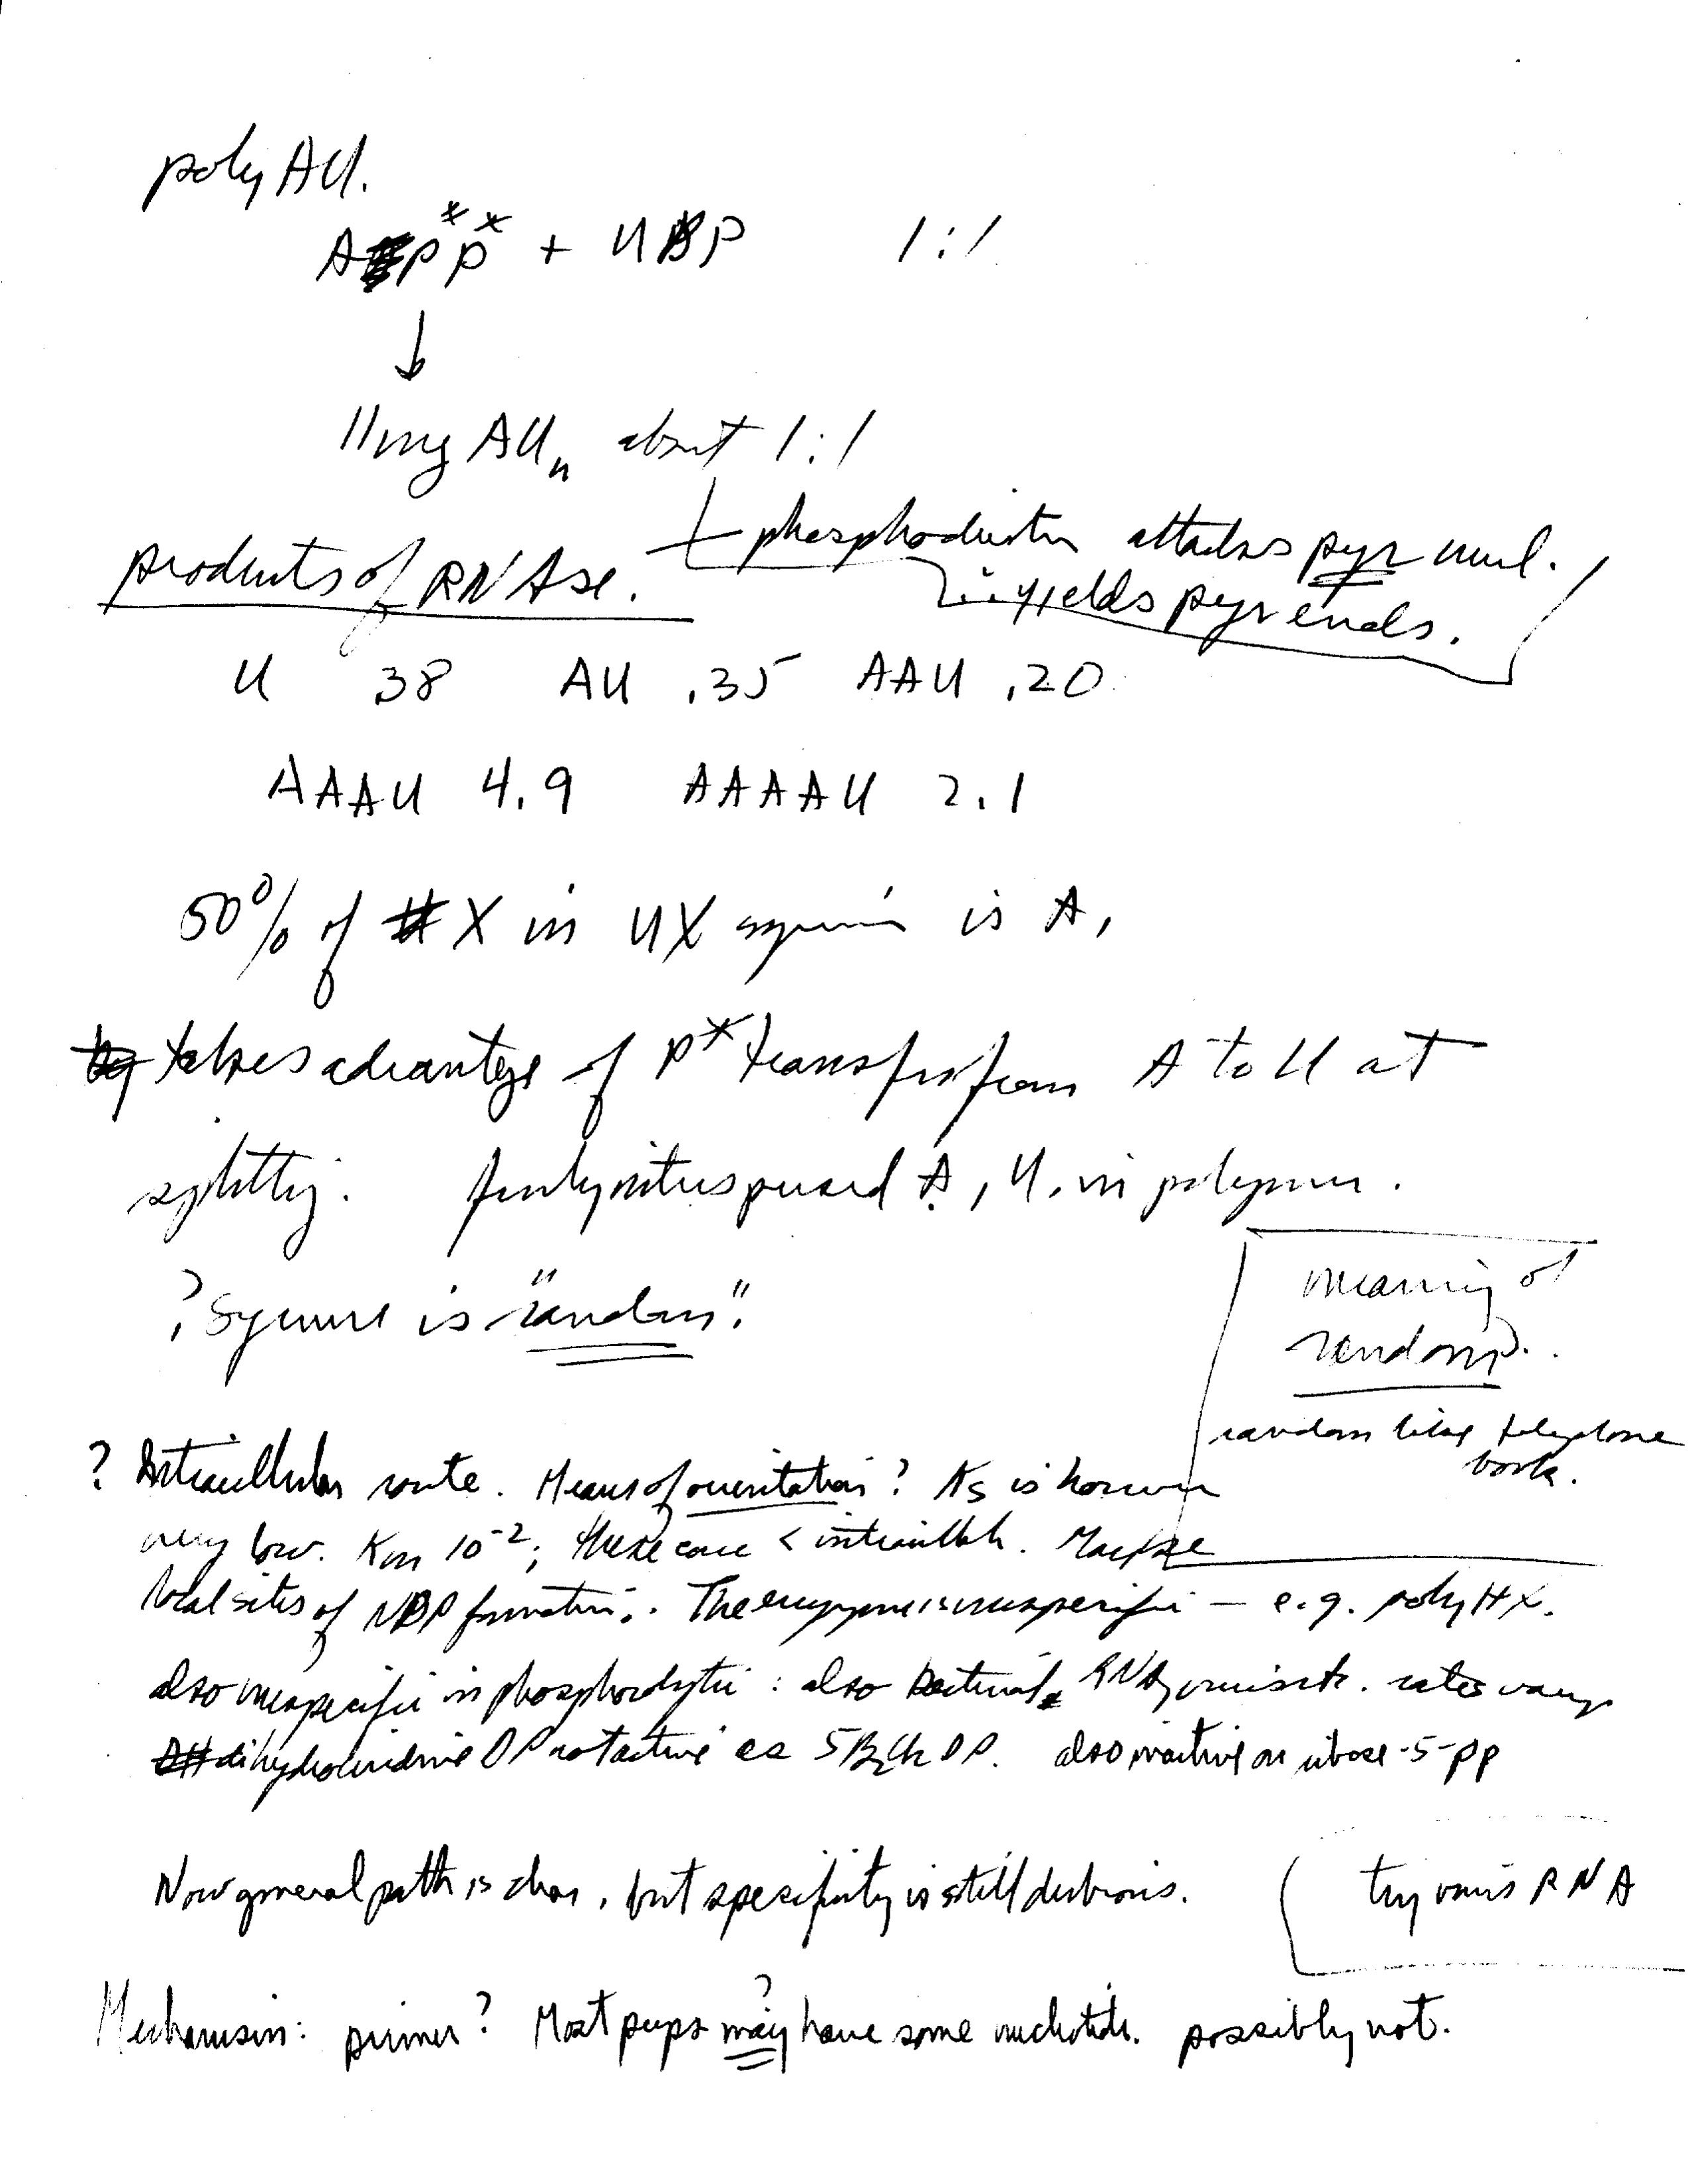 poly AU.
App + UPP 1:1
11 mg AUn about 1:1
products of RNAse. phosphodiester attacks pyr nucl.
∴ yields pyr ends.
U 38 AU .35 AAU .20
AAAU 4.9 AAAAU 2.1
50% of X in UX sequence is A,
takes advantage of P* transfer from A to U at
splitting. finely interspersed A, U, in polymer.
? Sequence is "random".
meaning of
random?.
random like telephone
book.
? Intracellular route. Means of orientation? As is known
very low. Km 10-2; these conc < intracellular. Maybe
local sites of NPP formation. The enzyme is unspecific — e.g. poly HX.
also unspecific in phosphorolysis: also bacterial RNA, rates vary
dihydrouridine DP not active as 5 Br U DP. also inactive on ribose-5-pp
Now general path is clear, but specificity is still dubious.
try virus RNA
Mechanism: primer? Most preps may? have some nucleotide. possibly not.